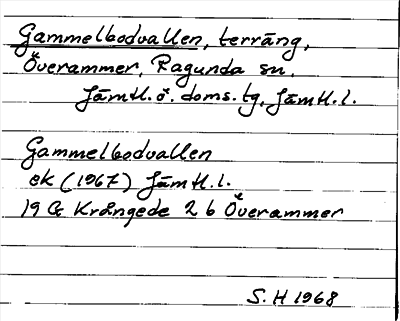 Gammelbodvallen, terräng,
Överammer, Ragunda sn,
Jämtl. ö. doms. tg, Jämtl. l.
Gammelbodvallen
ek (1967) Jämtl. l.
19 G Krångede 2 b Överammer
S. H 1968